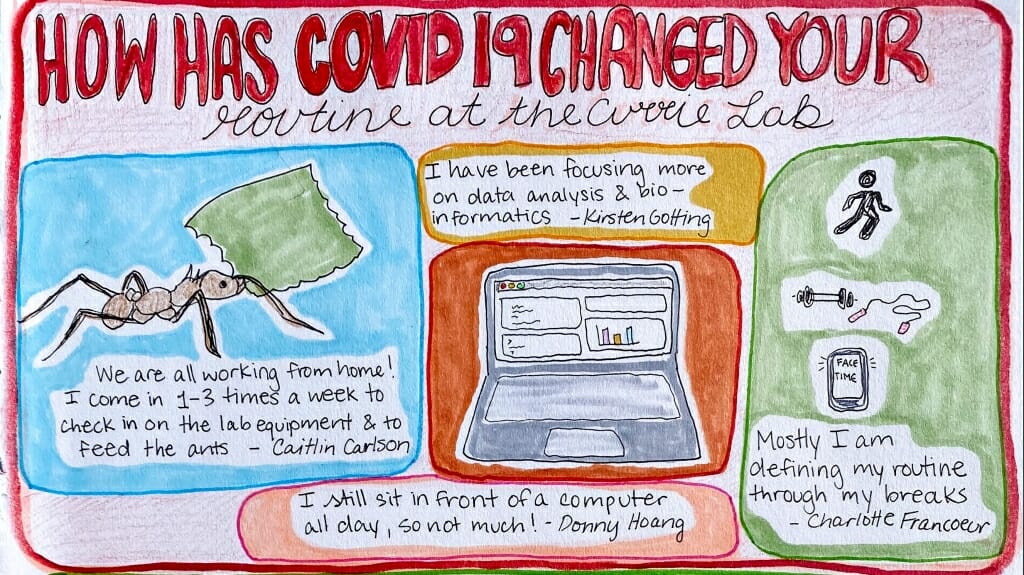 HOW HAS COVID 19 CHANGED YOUR
routine at the Currie Lab
We are all working from home!
I come in 1-3 times a week to
check in on the lab equipment & to
feed the ants - Caitlin Carlson
I have been focusing more
on data analysis & bio-
informatics - Kirsten Gotting
I still sit in front of a computer
all day, so not much! - Donny Hoang
FACE
TIME
Mostly I am
defining my routine
through my breaks
- Charlotte Francoeur